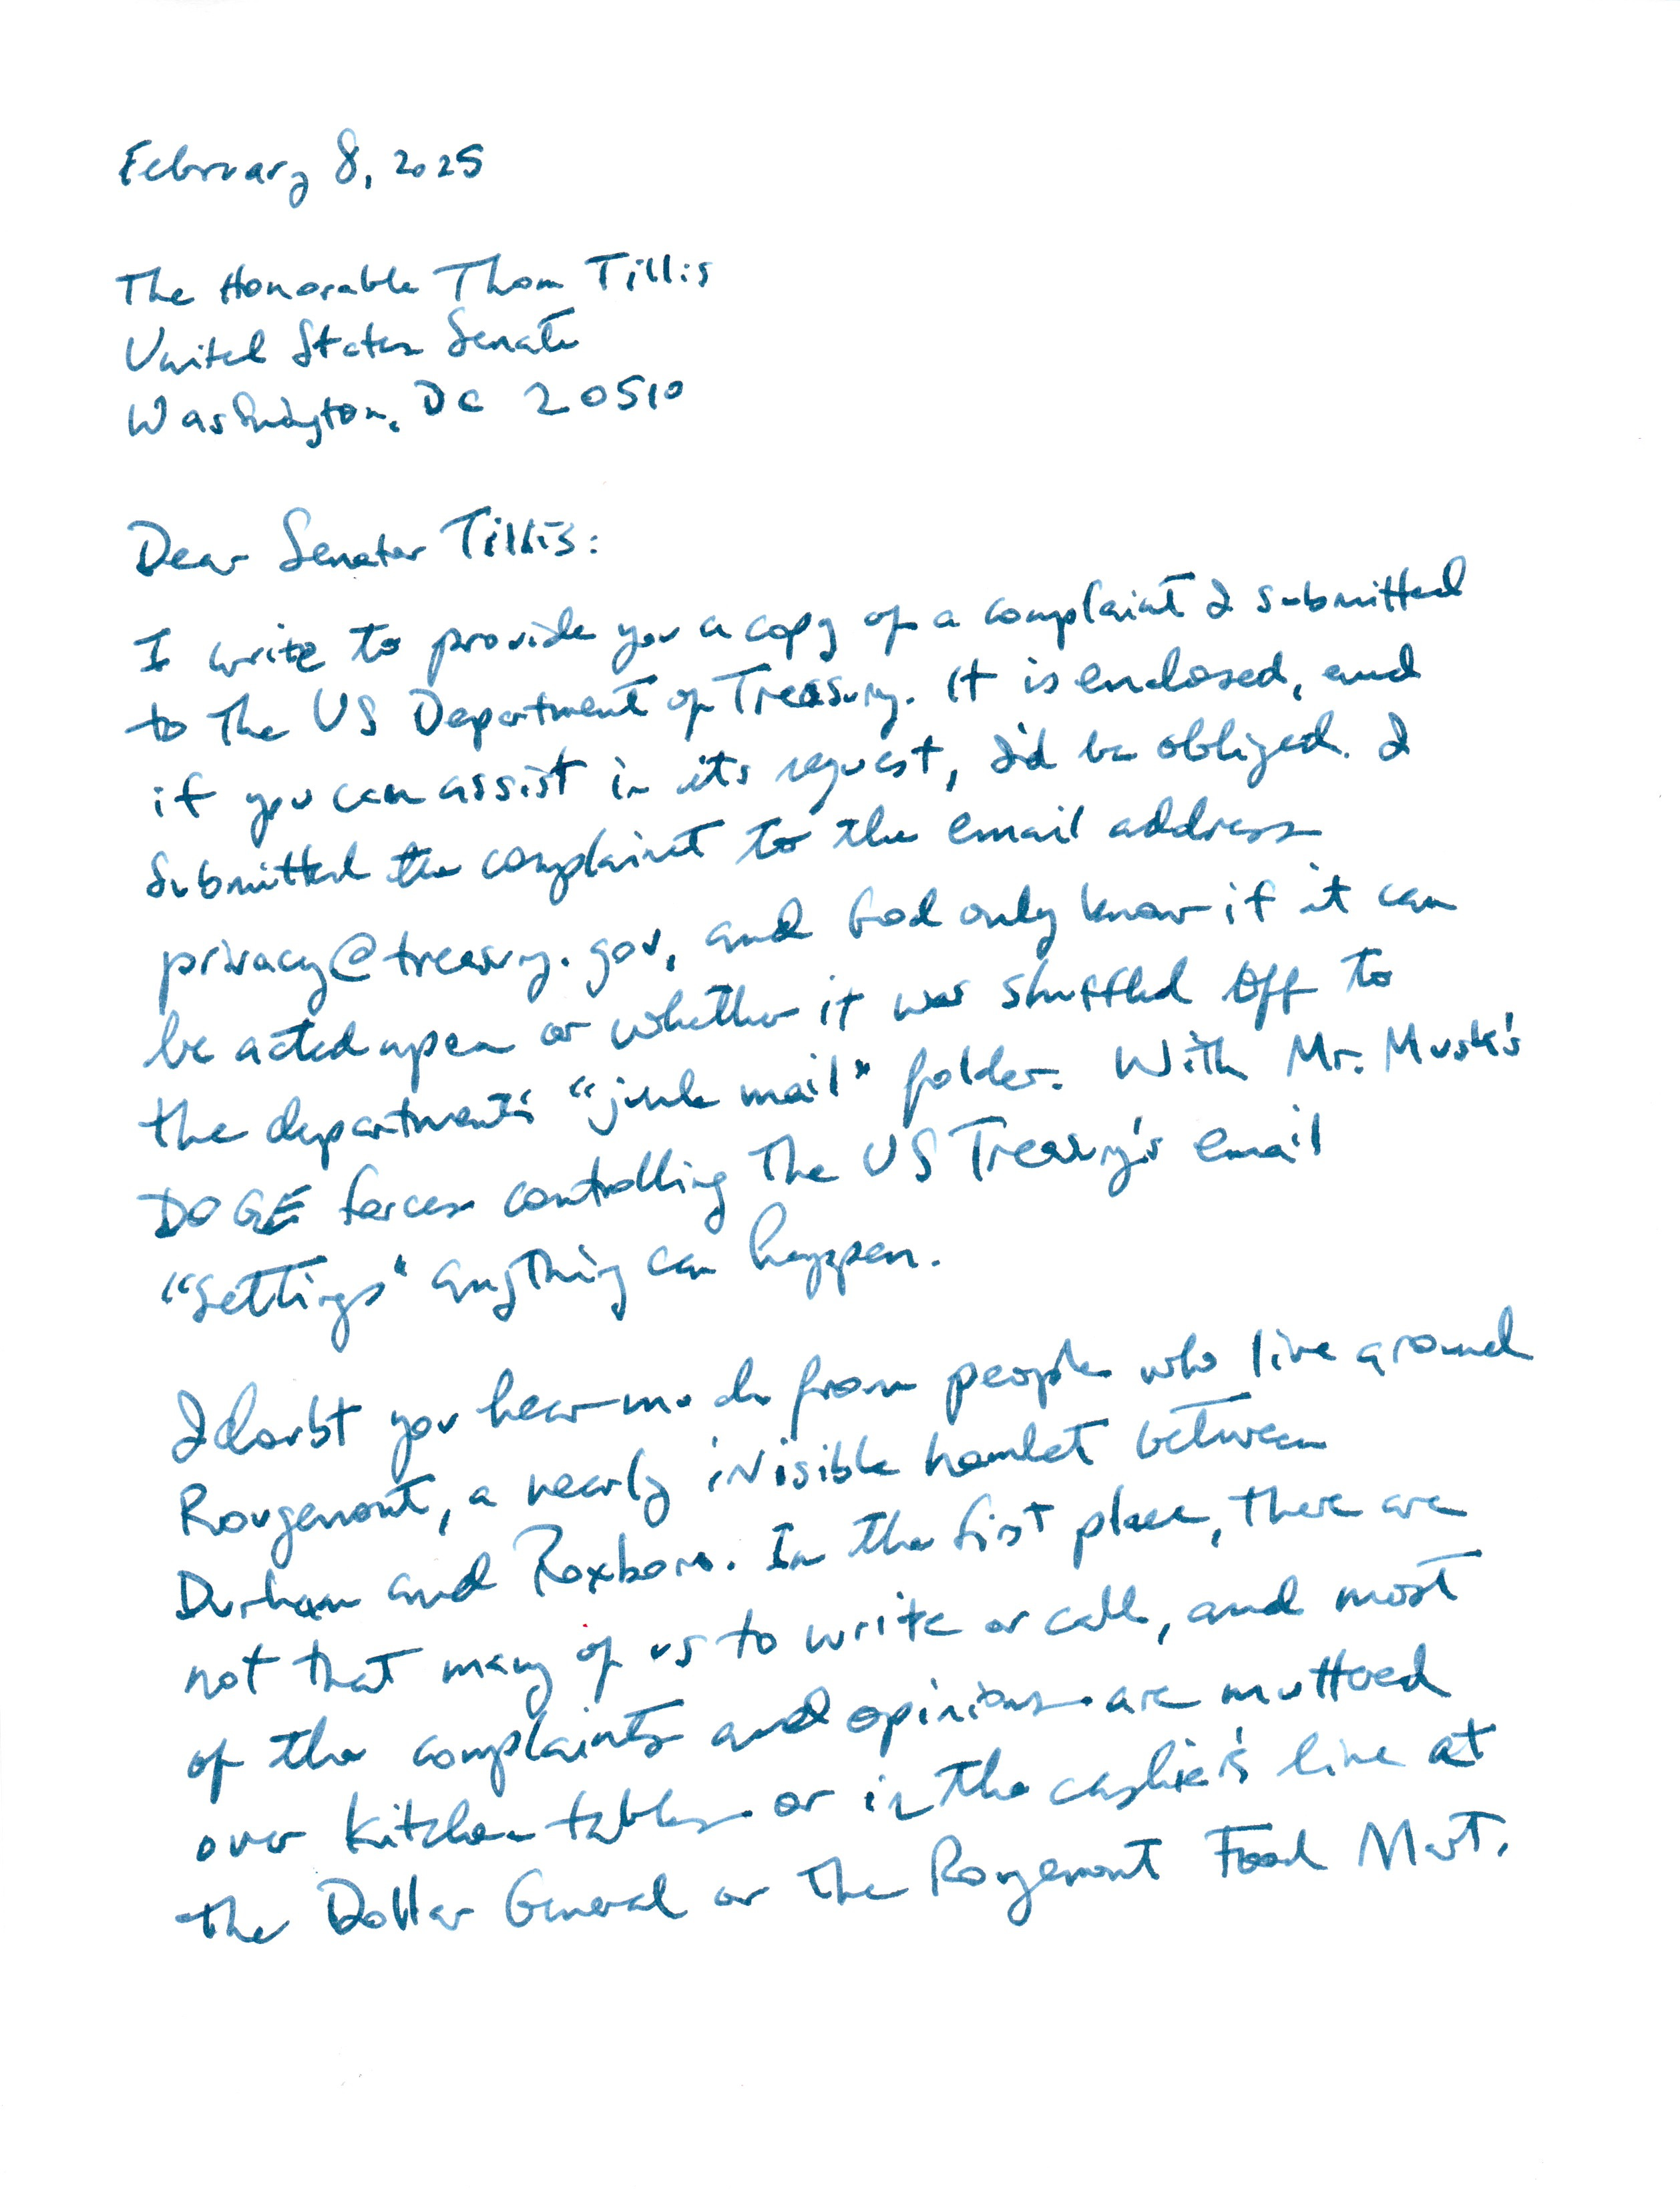 February 8, 2025
The Honorable Thom Tillis
United States Senate
Washington, DC 20510
Dear Senator Tillis:
I write to provide you a copy of a complaint I submitted
to the US Department of Treasury. It is enclosed, and
if you can assist in its request, I'd be obliged. I
submitted the complaint to the email address
privacy@treasury.gov, and God only know if it can
be acted upon or whether it was shuffled off to
the department's "junk mail" folder. With Mr. Musk's
DOGE forces controlling the US Treasury's email
"settings" anything can happen.
I doubt you hear much from people who live around
Rougemont, a nearly invisible hamlet between
Durham and Roxboro. In the first place, there are
not that many of us to write or call, and most
of the complaints and opinions are muttered
over kitchen tables or in the cashier's line at
the Dollar General or the Rougemont Food Mart.